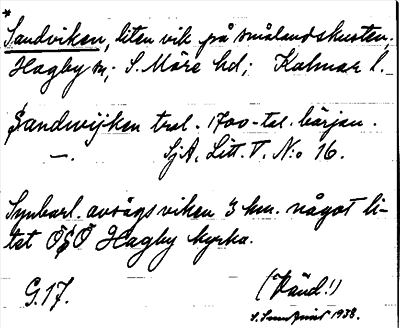 *
Sandviken, liten vik på smålandskusten;
Hagby sn; S. Möre hd; Kalmar l.
Sandwijken trol. 1700-tal. början.
—.  SjA. Litt. V. N:o 16.
Synbarl. avsågs viken 3 km. något li-
tet ÖSÖ Hagby kyrka.
G. 17.  (Vänd!)
1938.